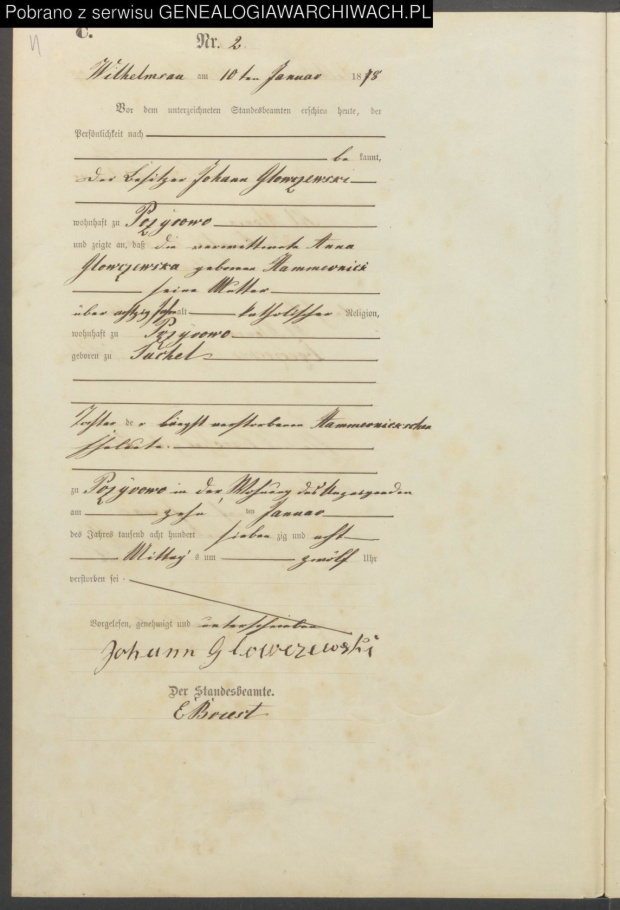 Pobrano z serwisu GENEALOGIAWARCHIWACH.PL
C.
Nr. 2
Wilhelmsau am 10ten Januar 1878
Vor dem unterzeichneten Standesbeamten erschien heute, der
Persönlichkeit nach
be kannt,
der Besitzer Johann Glowczewski
wohnhaft zu
und zeigte an, daß die verwittwete Anna
Glowczewska geborene Hammernick
seine Mutter
über achtzig Jahr alt katholischer Religion,
wohnhaft zu
geboren zu Tuchel
Tochter der längst verstorbenen Hammernickschen
Eheleute.
zu in der Wohnung des Anzeigenden
am zehn ten Januar
des Jahres tausend acht hundert sieben zig und acht
Mittag s um zwölf Uhr
verstorben sei.
Vorgelesen, genehmigt und unterschrieben
Johann Glowczewski
Der Standesbeamte.